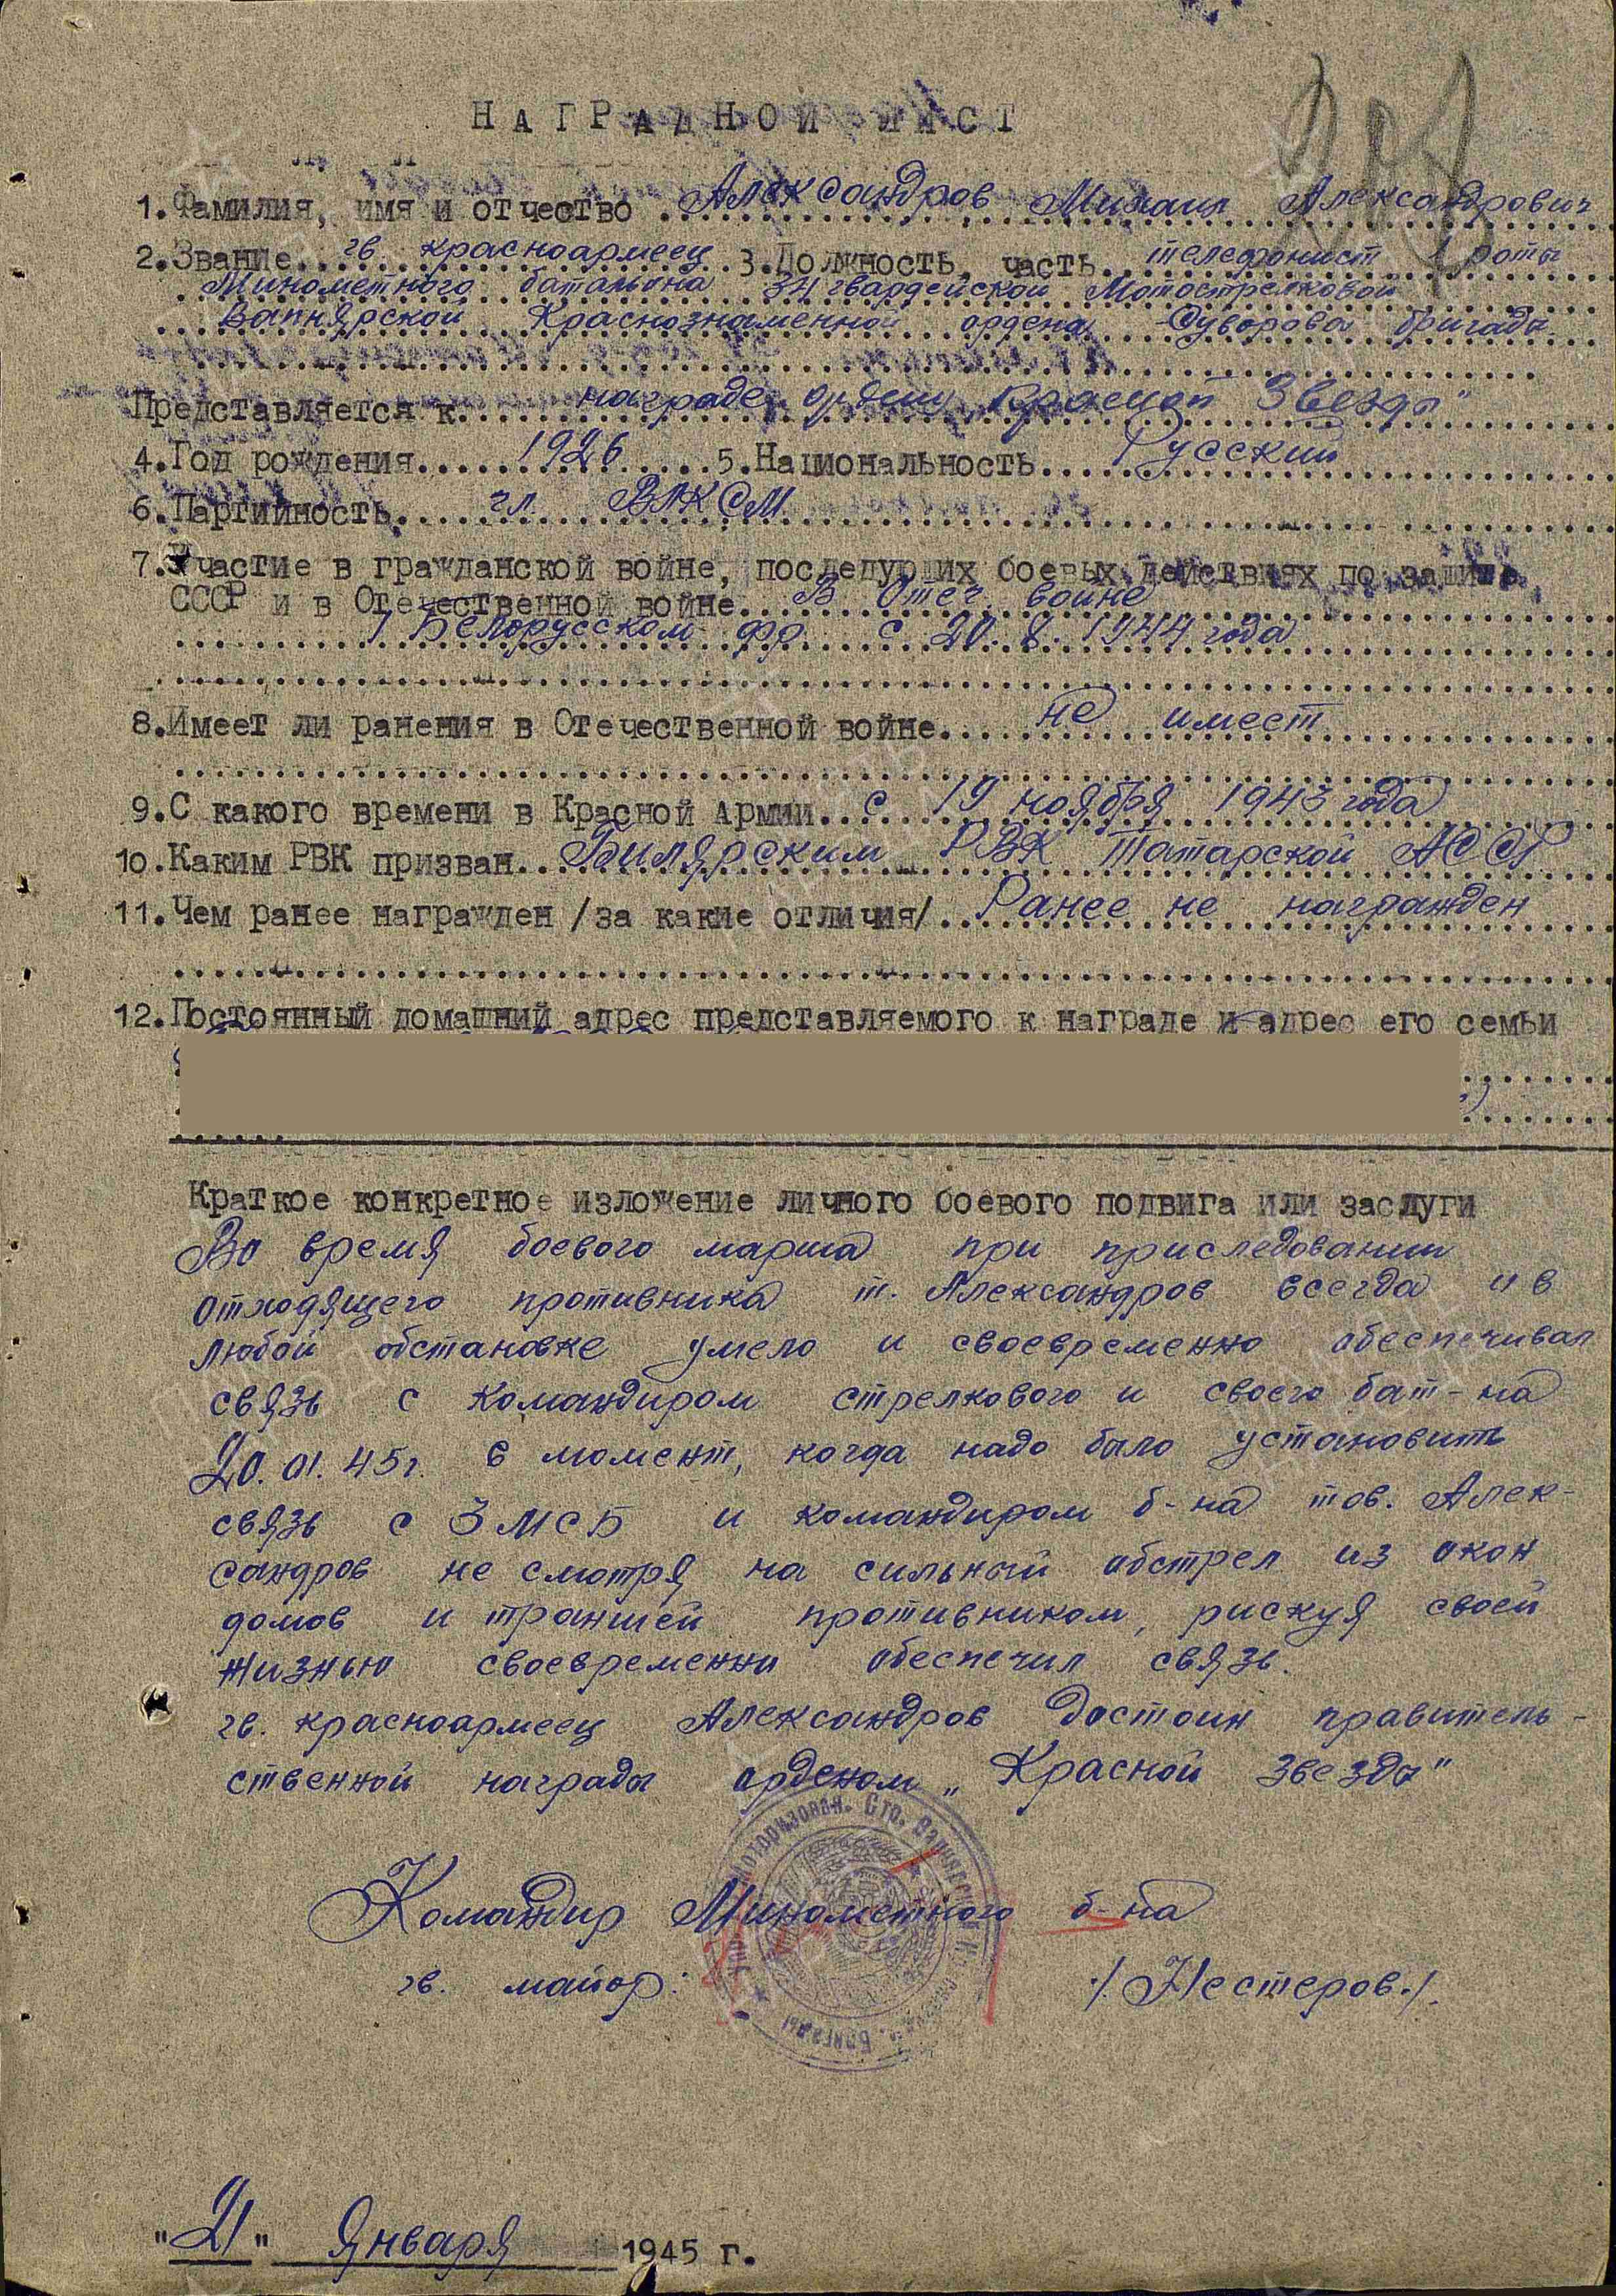 НАГРАДНОЙ ЛИСТ
1.Фамилия, имя и отчество Александров Михаил Александрович
2.Звание гв. красноармеец 3.Должность, часть телефонист 1 роты
Минометного батальона 34 гвардейской Мотострелковой
Вапнярской Краснознаменной ордена Суворова бригады
Представляется к награде орден „Красной Звезды"
4.Год рождения 1926 5.Национальность Русский
6.Партийность чл. ВЛКСМ
7.Участие в гражданской войне, последующих боевых действиях по защите
СССР и в Отечественной войне В Отеч. войне
1 Белорусском фр. с 20.8.1944 года
8.Имеет ли ранения в Отечественной войне не имеет
9.С какого времени в Красной Армии с 19 ноября 1943 года
10.Каким РВК призван Билярским РВК Татарской АССР
11.Чем ранее награжден /за какие отличия/ Ранее не награжден
12.Постоянный домашний адрес представляемого к награде и адрес его семьи
Краткое конкретное изложение личного боевого подвига или заслуги
Во время боевого марша при приследовании
отходящего противника т. Александров всегда и в
любой обстановке умело и своевременно обеспечивал
связь с командиром стрелкового и своего бат-на
20.01.45г. в момент, когда надо было установить
связь с 3 МСБ и командиром б-на тов. Алек-
сандров не смотря на сильный обстрел из окон
домов и траншей противником, рискуя своей
жизнью своевременно обеспечил связь.
гв. красноармеец Александров достоин правитель-
ственной награды орденом „Красной Звезды"
Командир Минометного б-на
гв. майор: /Нестеров./
"21" Января 1945 г.